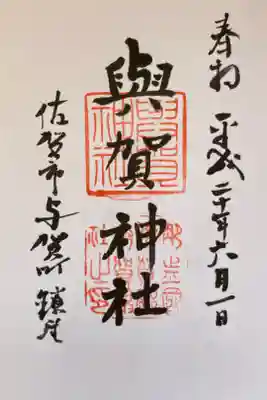 奉拝 平成二十年六月一日
與賀神社
佐賀市与賀町鎮座